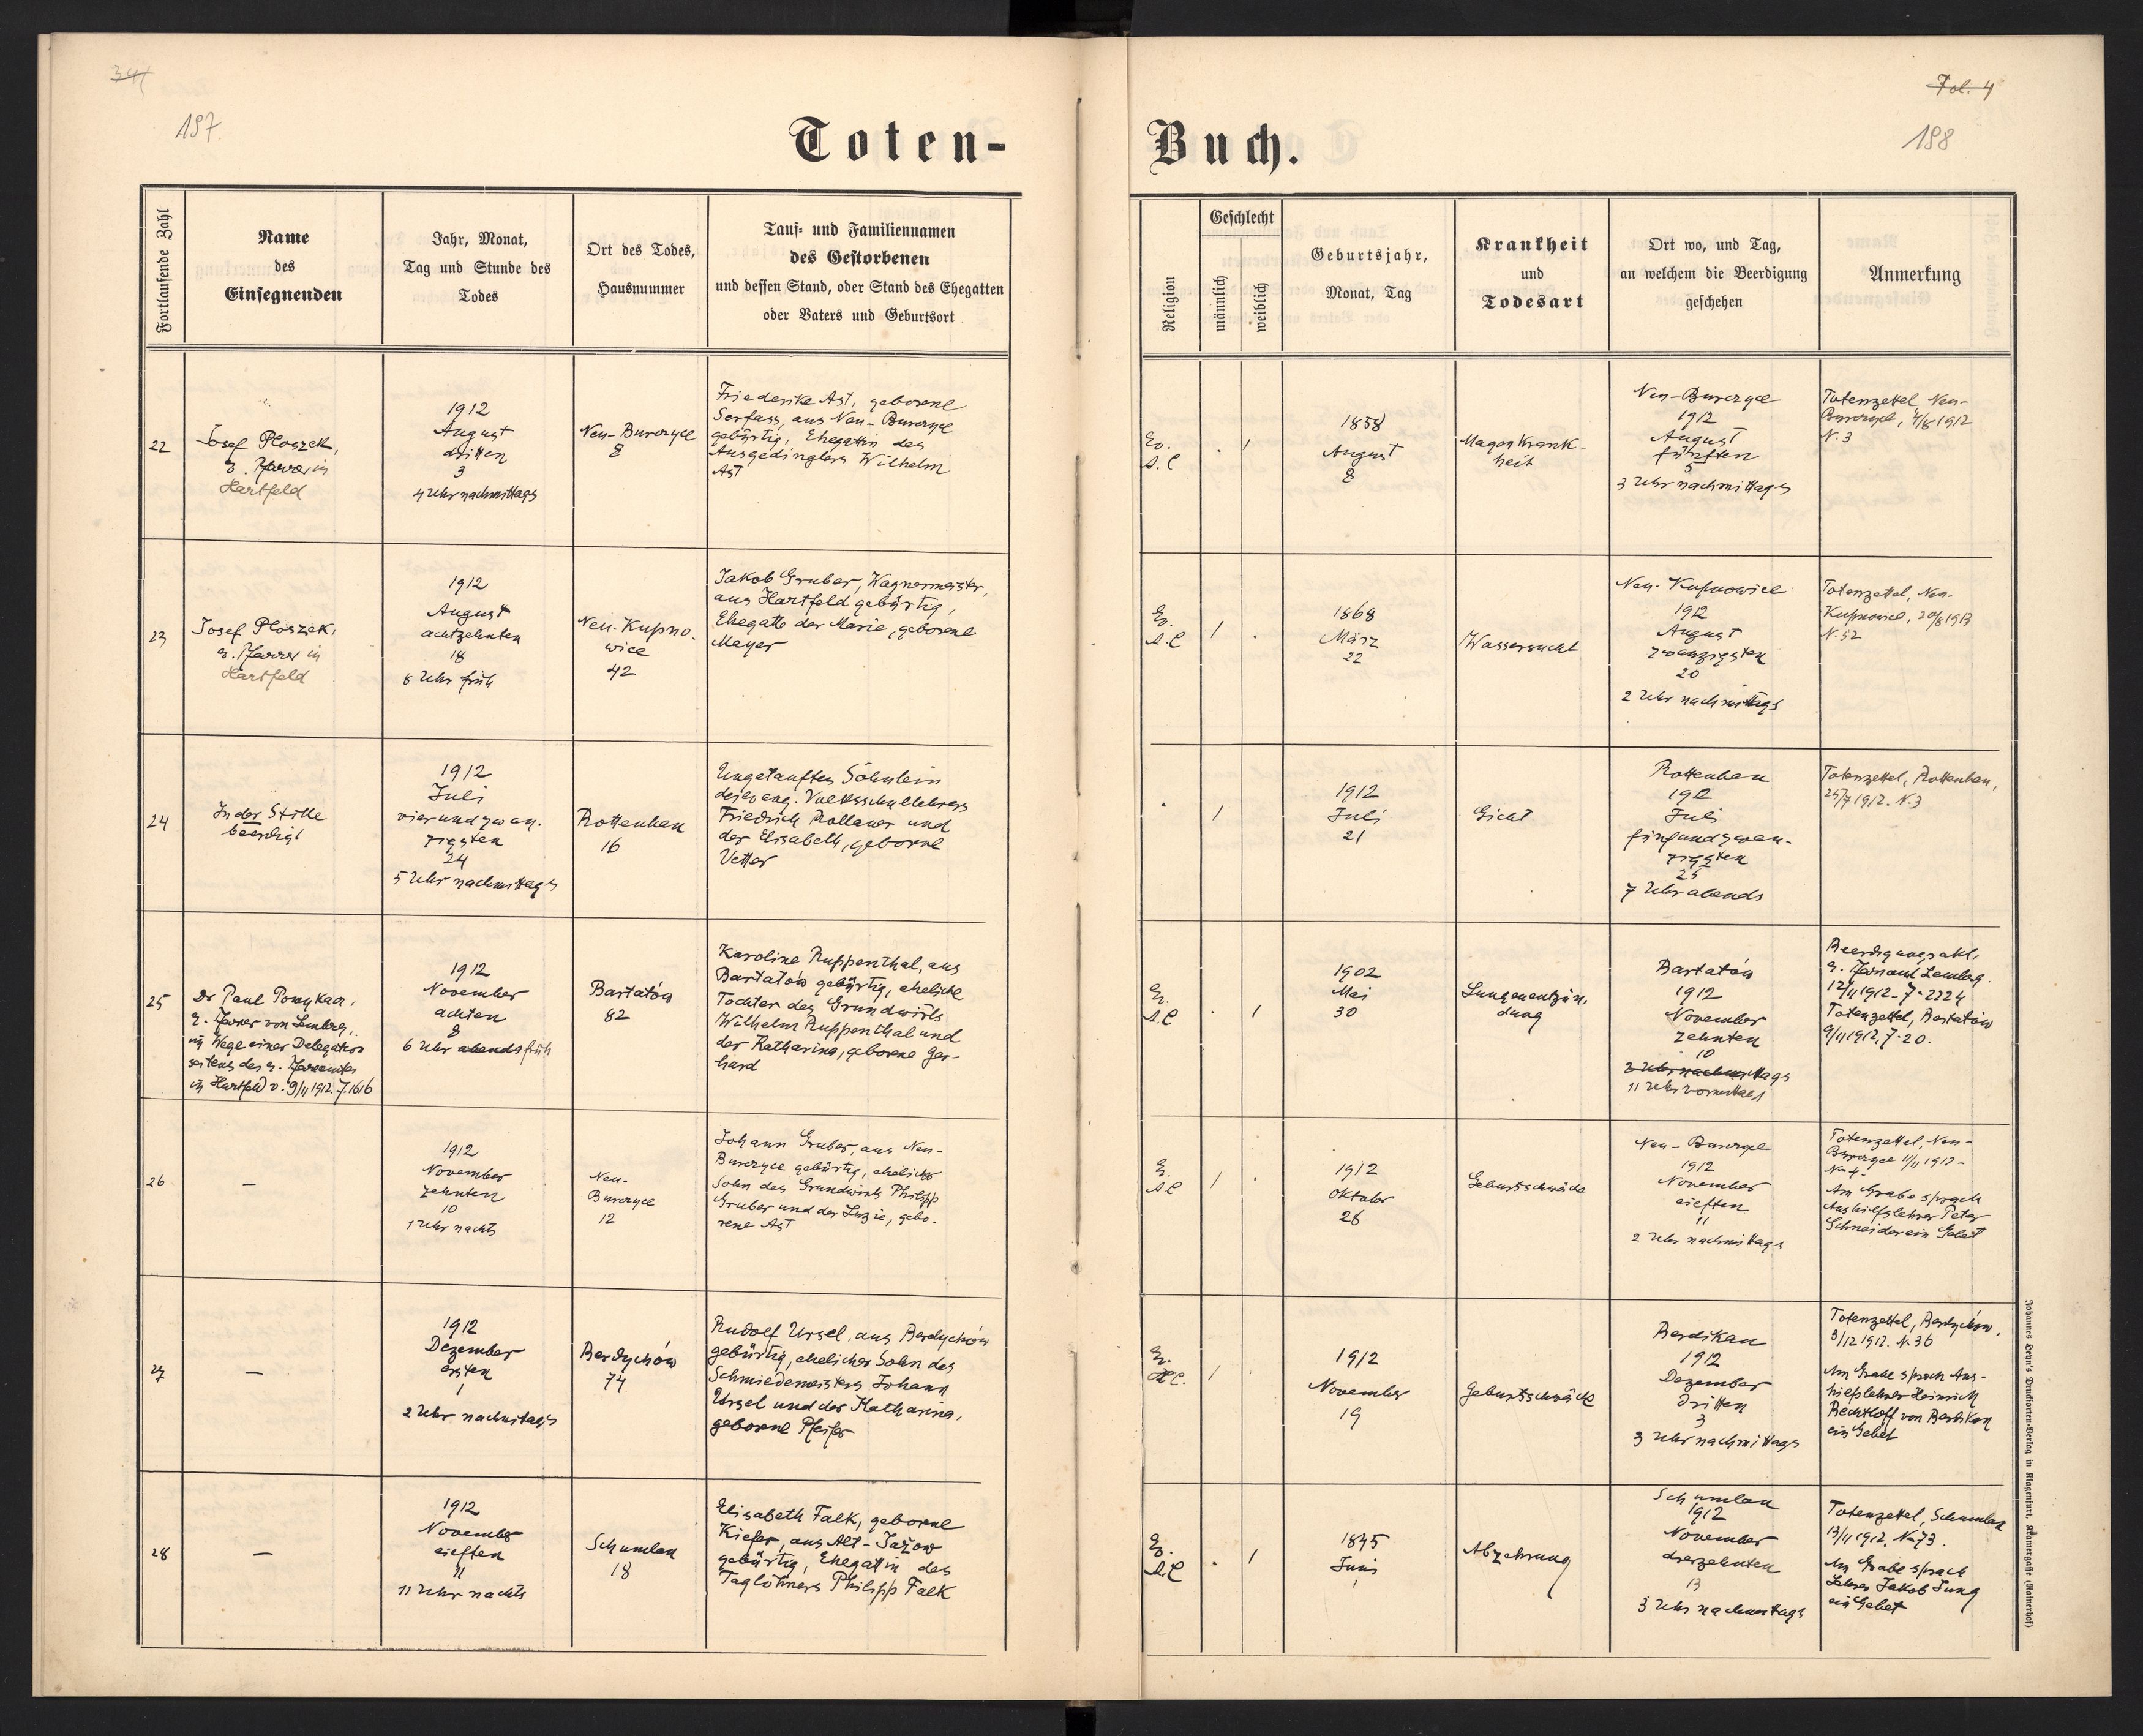 341
197.
Toten-
Fortlaufende Zahl
Name
des
Einsegnenden
Jahr, Monat,
Tag und Stunde des
Todes
Ort des Todes,
Hausnummer
Tauf- und Familiennamen
des Gestorbenen
und dessen Stand, oder Stand des Ehegatten
oder Vaters und Geburtsort
Fol. 4
198
Buch.
Religion
Geschlecht
männlich
weiblich
Geburtsjahr,
Monat, Tag
Krankheit
und
Todesart
Ort wo, und Tag,
an welchem die Beerdigung
geschehen
Anmerkung
22
Josef Ploszek,
e. Pfarrer in
Hartfeld
1912
August
dritten
3
4 Uhr nachmittags
Neu-Burczyce
8
Friederike Ast, geborene
Serfass, aus Neu-Burczyce
gebürtig, Ehegattin des
Ausgedinglers Wilhelm
Ast
Ev.
A.C
1
1858
August
8
Magenkrank-
heit
Neu-Burczyce
1912
August
fünften
5
3 Uhr nachmittags
Totenzettel Neu-
Burczyce, 4/8 1912
N. 3
23
Josef Ploszek,
e. Pfarrer in
Hartfeld
1912
August
achtzehnten
18
8 Uhr früh
Neu-Kupno-
wice
42
Jakob Gruber, Wagnermeister,
aus Hartfeld gebürtig,
Ehegatte der Marie, geborene
Mayer
Ev.
A.C
1
1868
März
22
Wassersucht
Neu-Kupnowice
1912
August
zwanzigsten
20
2 Uhr nachmittags
Totenzettel, Neu-
Kupnowice, 20/8 1912
N. 52
24
In der Stille
beerdigt
1912
Juli
vierundzwan-
zigsten
24
5 Uhr nachmittags
Rottenhan
16
Ungetauftes Söhnlein
des evang. Volksschullehrers
Friedrich Rollauer und
der Elisabeth, geborene
Vetter
1
1912
Juli
21
Gicht
Rottenhan
1912
Juli
fünfundzwan-
zigsten
25
7 Uhr abends
Totenzettel, Rottenhan,
25/7 1912. N. 3
25
Dr Paul Ponykaa,
e. Pfarrer von Lemberg,
im Wege einer Delegation
seitens des e. Pfarramtes
in Hartfeld v. 9/11 1912. Z. 1616
1912
November
achten
8
6 Uhr abends früh
Bartatów
82
Karoline Ruppenthal, aus
Bartatów gebürtig, eheliche
Tochter des Grundwirts
Wilhelm Ruppenthal und
der Katharina, geborene Ger-
hard
Ev.
A.C
1
1902
Mai
30
Lungenentzün-
dung
Bartatów
1912
November
zehnten
10
2 Uhr nachmittags
11 Uhr vormittags
Beerdigungsakt,
e. Pfarramt Lemberg
12/11 1912 - Z. 2224
Totenzettel, Bartatów
9/11 1912, Z. 20.
26
—
1912
November
zehnten
10
1 Uhr nachts
Neu-
Burczyce
12
Johann Gruber, aus Neu-
Burczyce gebürtig, ehelicher
Sohn des Grundwirts Philipp
Gruber und der Luzie, gebo-
rene Ast
Ev.
A.C
1
1912
Oktober
28
Geburtsschwäche
Neu-Burczyce
1912
November
eilften
11
2 Uhr nachmittags
Totenzettel, Neu-
Burczyce 11/11 1912 -
N. 4.
Am Grabe sprach
Aushilfslehrer Peter
Schneider ein Gebet
27
—
1912
Dezember
ersten
1
2 Uhr nachmitags
Berdychów
74
Rudolf Ursel, aus Berdychów
gebürtig, ehelicher Sohn des
Schmiedemeisters Johann
Ursel und der Katharina,
geborene Pfeifer
Ev.
H.C.
1
1912
November
19
Geburtsschwäche
Berdikau
1912
Dezember
dritten
3
3 Uhr nachmittags
Totenzettel, Berdychów,
3/12 1912. N. 36
Am Grabe sprach Aus-
hilfslehrer Heinrich
Bechtloff von Berdikau
ein Gebet
28
—
1912
November
eilften
11
11 Uhr nachts
Schumlau
18
Elisabeth Falk, geborene
Kiefer, aus Alt-Jażow
gebürtig, Ehegattin des
Taglöhners Philipp Falk
Ev.
A.C
1
1845
Juni
1
Abzehrung
Schumlau
1912
November
dreizehnten
13
3 Uhr nachmitags
Totenzettel, Schumlau
13/11 1912. N. 73.
Am Grabe sprach
Lehrer Jakob Jung
ein Gebet
Johannes Heyn's Drucksorten-Verlag in Klagenfurt, Kramergasse (Rainerhof)